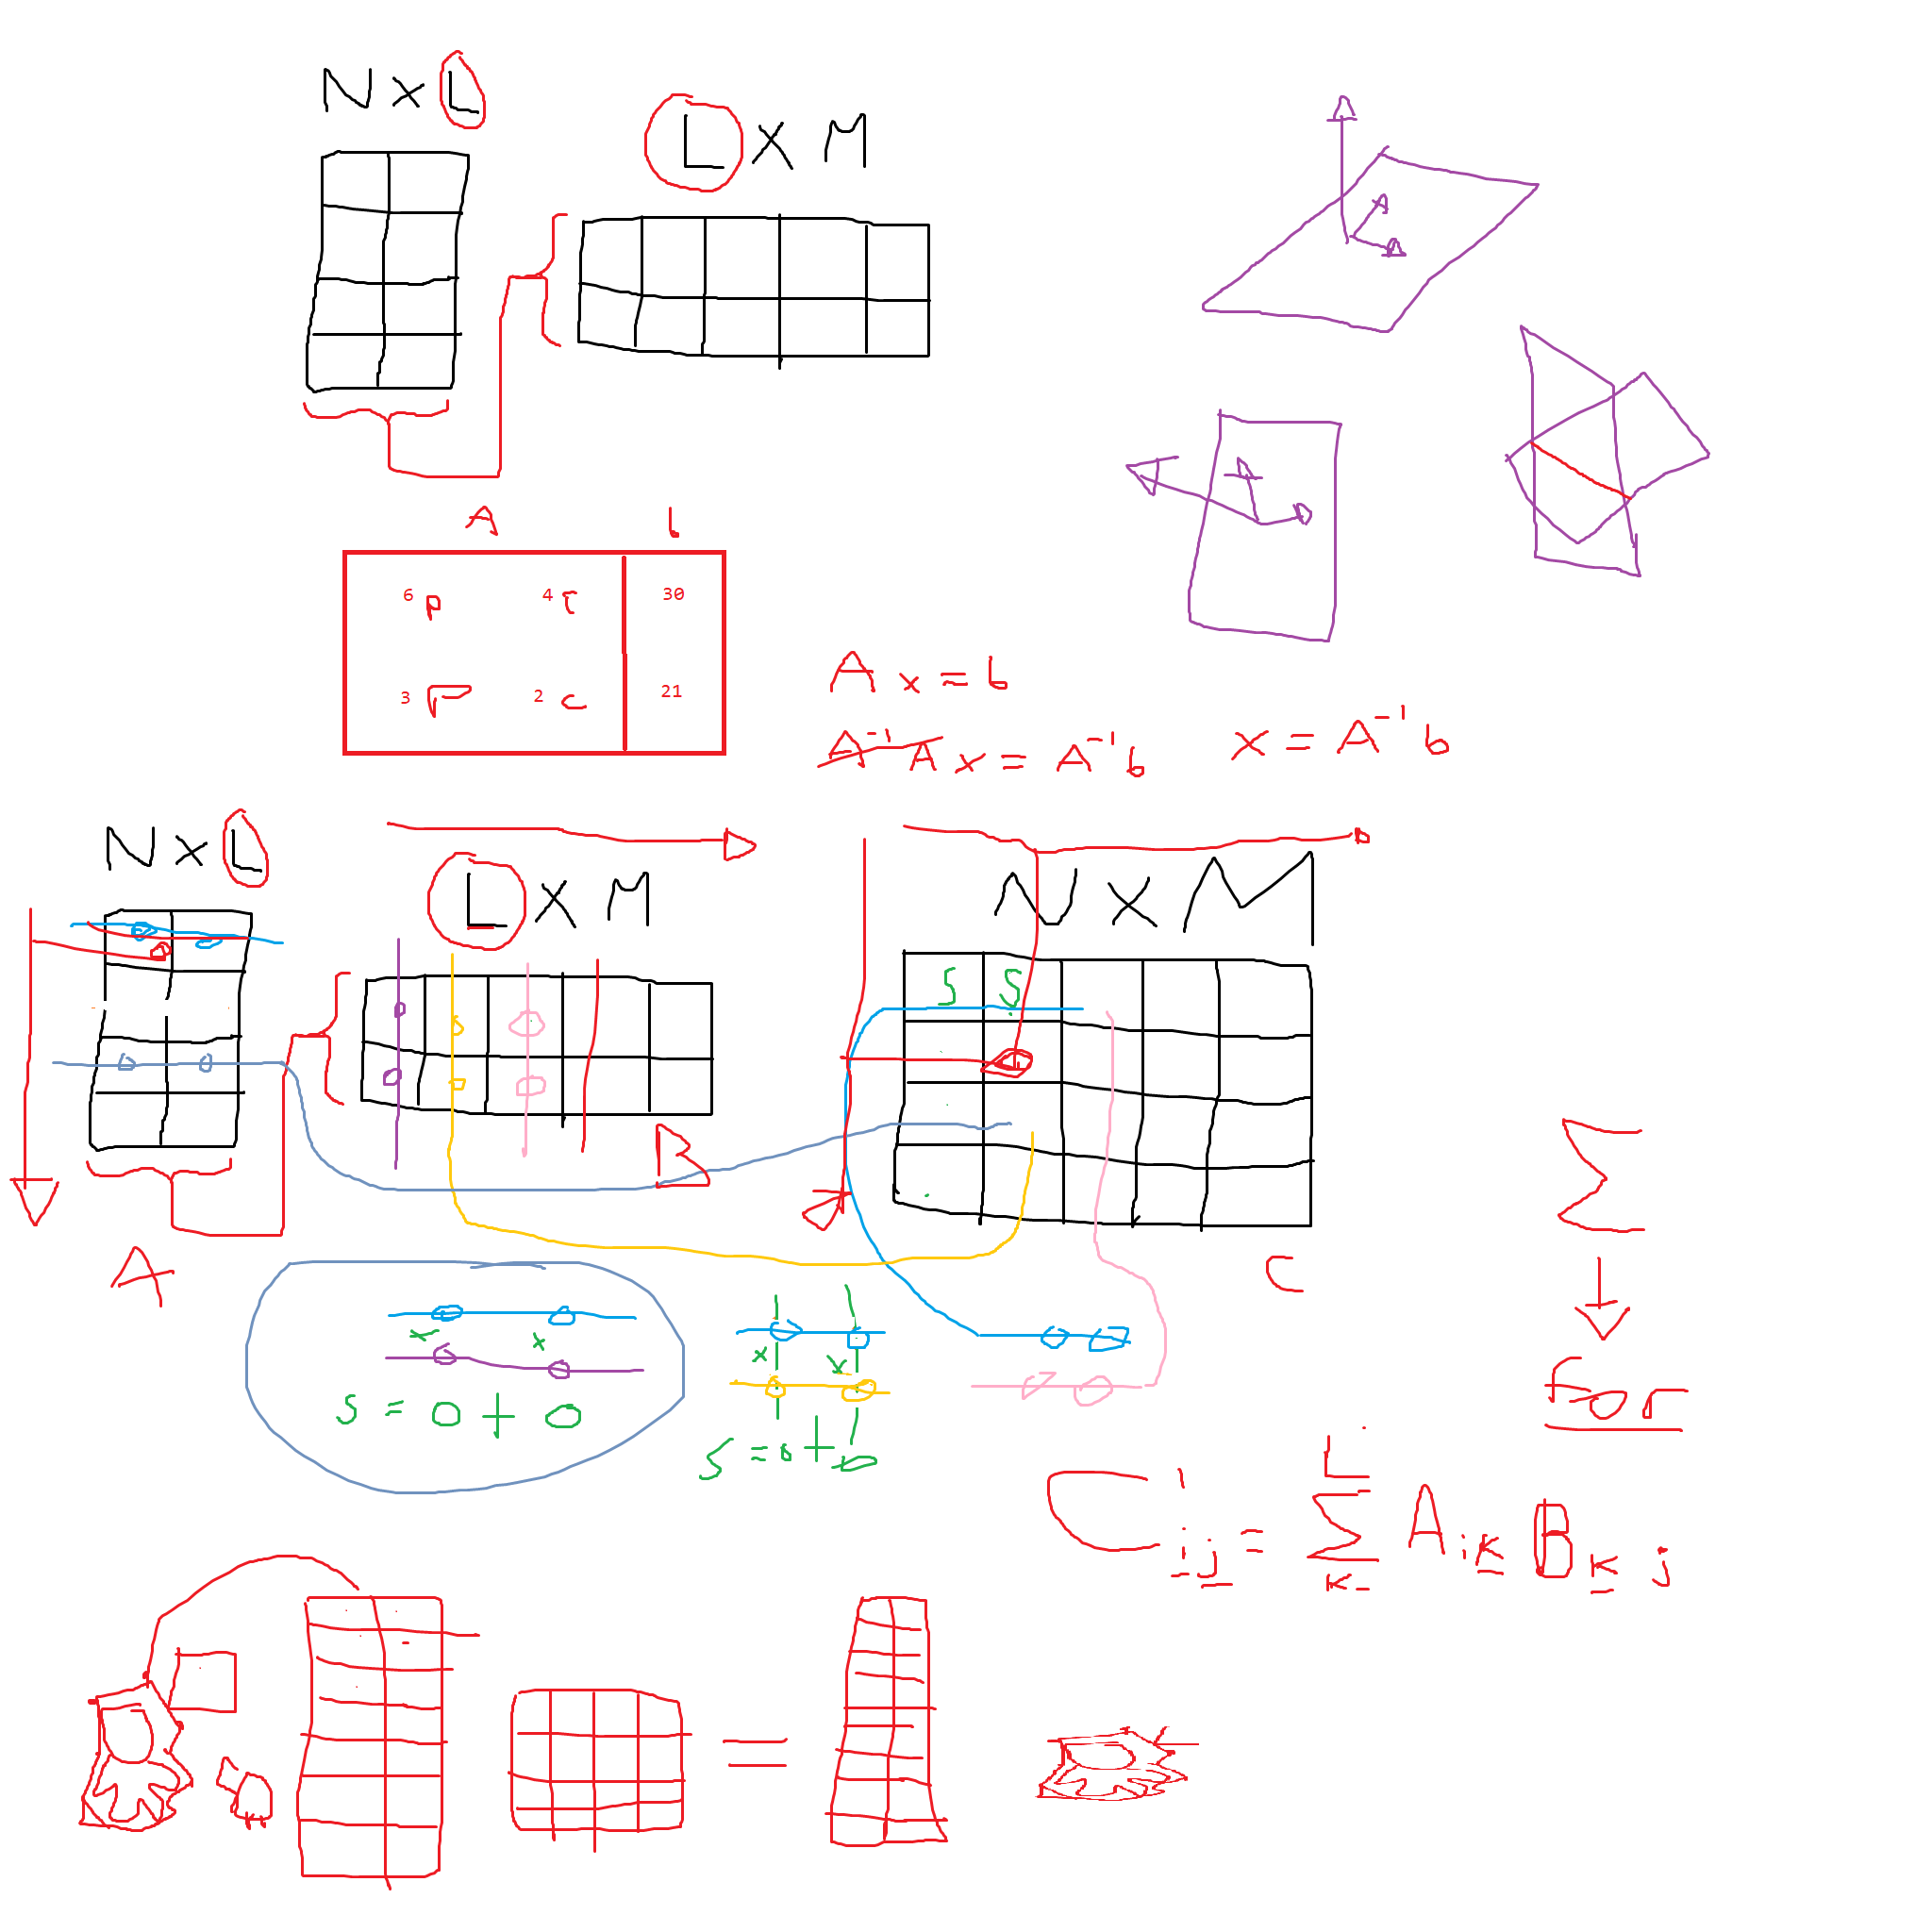 N x L
L x M
A b
6 p 4 c 30
3 r 2 c 21
A x = b
A⁻¹ A x = A⁻¹ b
x = A⁻¹ b
N x L
L x M
N x M
S S
B
A
C
x x
S = 0 + 0
x x
S = 0 + 0
Σ
for
C ij = Σ A ik B kj
L
k=
=